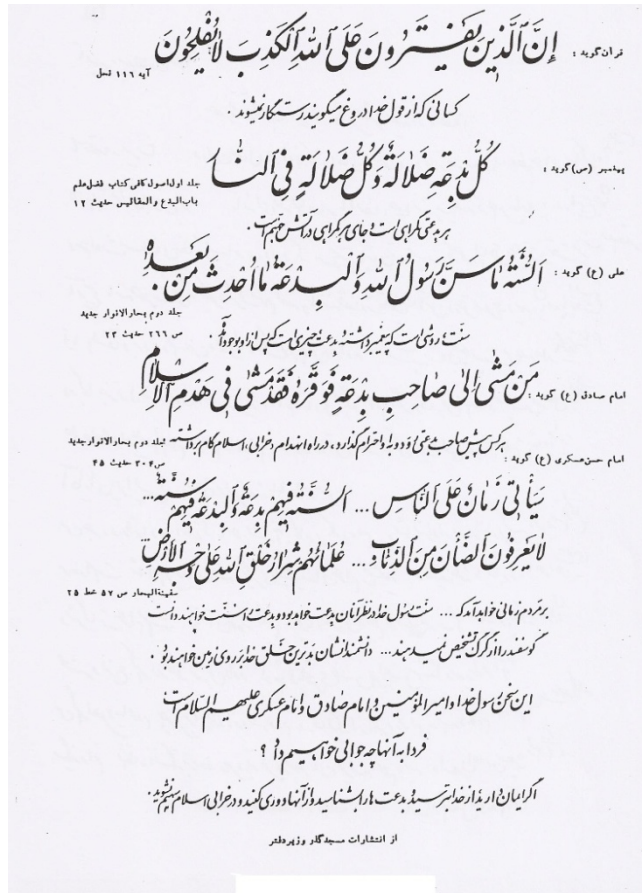 قرآن گوید : إِنَّ ٱلَّذِینَ یَفْتَرُونَ عَلَی ٱللّٰهِ ٱلْکَذِبَ لٰا یُفْلِحُونَ
آیه ۱۱۶ نحل
کسانی که از قول خدا دروغ میگویند رستگار نمیشوند .
پیغمبر (ص) گوید : کُلُّ بِدْعَةٍ ضَلٰالَةٌ وَ کُلُّ ضَلٰالَةٍ فِی ٱلنّٰار
جلد اول اصول کافی کتاب فضل علم
باب البدع والمقائیس حدیث ۱۲
هر بدعتی گمراهی است و جای هر گمراهی در آتش جهنم است .
علی (ع) گوید : اَلسُّنَّةُ مٰا سَنَّ رَسُولُ ٱللّٰه وَ ٱلْبِدْعَةُ مٰا اُحْدِثَ مِن بَعْدِهِ .
جلد دوم بحارالانوار جدید
ص ۲۶۶ حدیث ۲۳
سنت ، روشی است که پیغمبر داشته و بدعت ، چیزی است که پس از او بوجود آمده .
امام صادق (ع) گوید : مَن مَشٰی اِلٰی صٰاحِبِ بِدْعَةٍ فَوَقَّرَهُ فَقَدْ مَشٰی فِی هَدْمِ ٱلْاِسْلٰامِ
هر کس پیش صاحب بدعتی رود و به او احترام گذارد ، در راه انهدام و خرابی ، اسلام گام برداشته
جلد دوم بحارالانوار جدید
ص ۳۰۴ حدیث ۴۵
امام حسن عسکری (ع) گوید :
سَیَأْتِی زَمٰانٌ عَلَی ٱلنّٰاسِ ... اَلسُّنَّةُ فِیهِمْ بِدْعَةٌ وَ ٱلْبِدْعَةُ فِیهِمْ سُنَّةٌ ...
لٰا یَعْرِفُونَ ٱلضَّأْنَ مِنَ ٱلذِّئٰابِ ... عُلَمٰائُهُمْ شِرٰارُ خَلْقِ ٱللّٰهِ عَلٰی وَجْهِ ٱلْاَرْضِ
سفینة البحار ص ۵۷ خط ۲۵
بر مردم زمانی خواهد آمد که ... سنت رسول خدا در نظر آنان بدعت خواهد بود و بدعت را سنت خواهند دانست
گوسفند را از گرگ تشخیص نمیدهند ... دانشمندانشان بدترین خلق خدا بر روی زمین خواهند بود .
این سخن رسول خدا و امیرالمؤمنین و امام صادق و امام عسکری علیهم السلام است
فردا به آنها چه جوابی خواهیم داد ؟
اگر ایمان دارید از خدا بترسید و بدعت ها را بشناسید و از آنها دوری کنید و در خرابی اسلام سهیم نشوید .
از انتشارات مسجد گذر وزیر دفتر